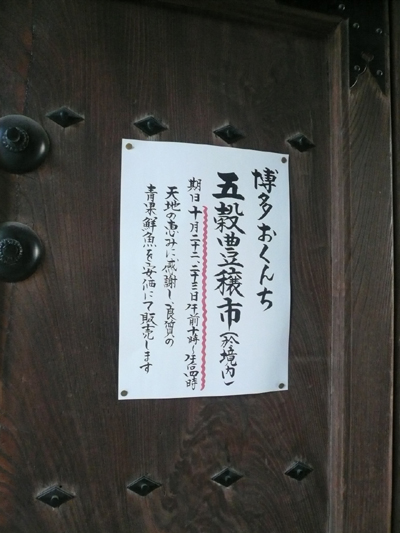 博多おくんち
五穀豊穣市(於境内)
期日十月二十二、二十三日午前十時〜午后四時
天地の恵みに感謝し、良質の
青果鮮魚を安価にて販売します